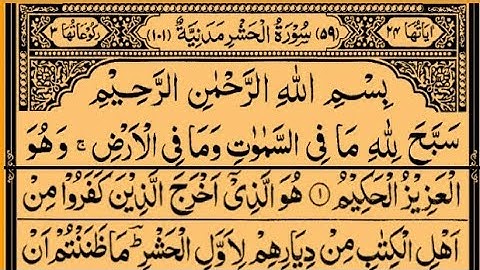 اٰیَاتُهَا ٢٤ (٥٩) سُوْرَةُ الْحَشْرِ مَدَنِیَّةٌ (١٠١) رُكُوْعَاتُهَا ٣
بِسْمِ اللهِ الرَّحْمٰنِ الرَّحِیْمِ
سَبَّحَ لِلّٰهِ مَا فِی السَّمٰوٰتِ وَمَا فِی الْاَرْضِ ۚ وَهُوَ
الْعَزِیْزُ الْحَكِیْمُ ۝١ هُوَ الَّذِیْۤ اَخْرَجَ الَّذِیْنَ كَفَرُوْا مِنْ
اَهْلِ الْكِتٰبِ مِنْ دِیَارِهِمْ لِاَوَّلِ الْحَشْرِ ؕ مَا ظَنَنْتُمْ اَنْ